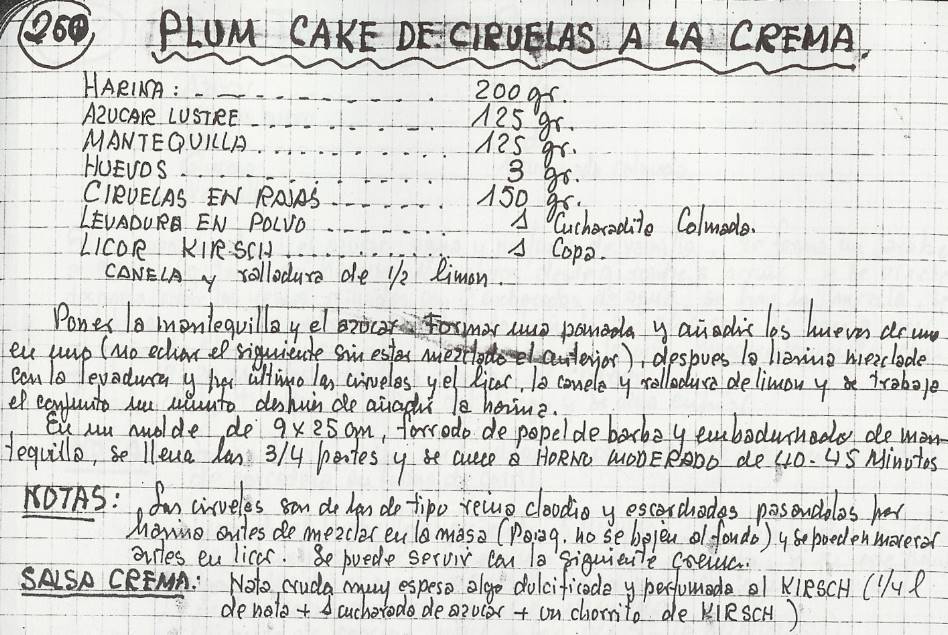 260
PLUM CAKE DE CIRUELAS A LA CREMA.
HARINA: - - - - - - - - - - - - . 200 gr.
AZUCAR LUSTRE - - - - - - - - - - - - . 125 gr.
MANTEQUILLA - - - - - - - - - - - - . 125 gr.
HUEVOS - - - - - - - - - - - - . 3 gr.
CIRUELAS EN RAJAS - - - - - - - - - . 150 gr.
LEVADURA EN POLVO - - - - - - - 1 Cucharadita Colmada.
LICOR KIRSCH - - - - - - - - - - 1 Copa.
CANELA y ralladura de 1/2 limon.
Poner la mantequilla y el azucar formar una pomada y añadir los huevos de uno
en uno (no echar el siguiente sin estar mezclado el anterior), despues la harina mezclada
con la levadura y por ultimo las ciruelas y el licor, la canela y ralladura de limon y se trabaja
el conjunto un minuto despues de añadir la harina.
En un molde de 9 x 25 cm, forrado de papel de barba y embadurnado de man-
tequilla, se llena las 3/4 partes y se cuece a HORNO MODERADO de 40-45 Minutos
NOTAS: Las ciruelas son de las de tipo reina claudia y escarchadas pasandolas por
harina antes de mezclar en la masa (Paraq. no se bajen al fondo) y se pueden macerar
antes en licor. Se puede servir con la siguiente crema.
SALSA CREMA: Nata cruda muy espesa algo dulcificada y perfumada al KIRSCH (1/4 l
de nata + 1 cucharada de azucar + un chorrito de KIRSCH)